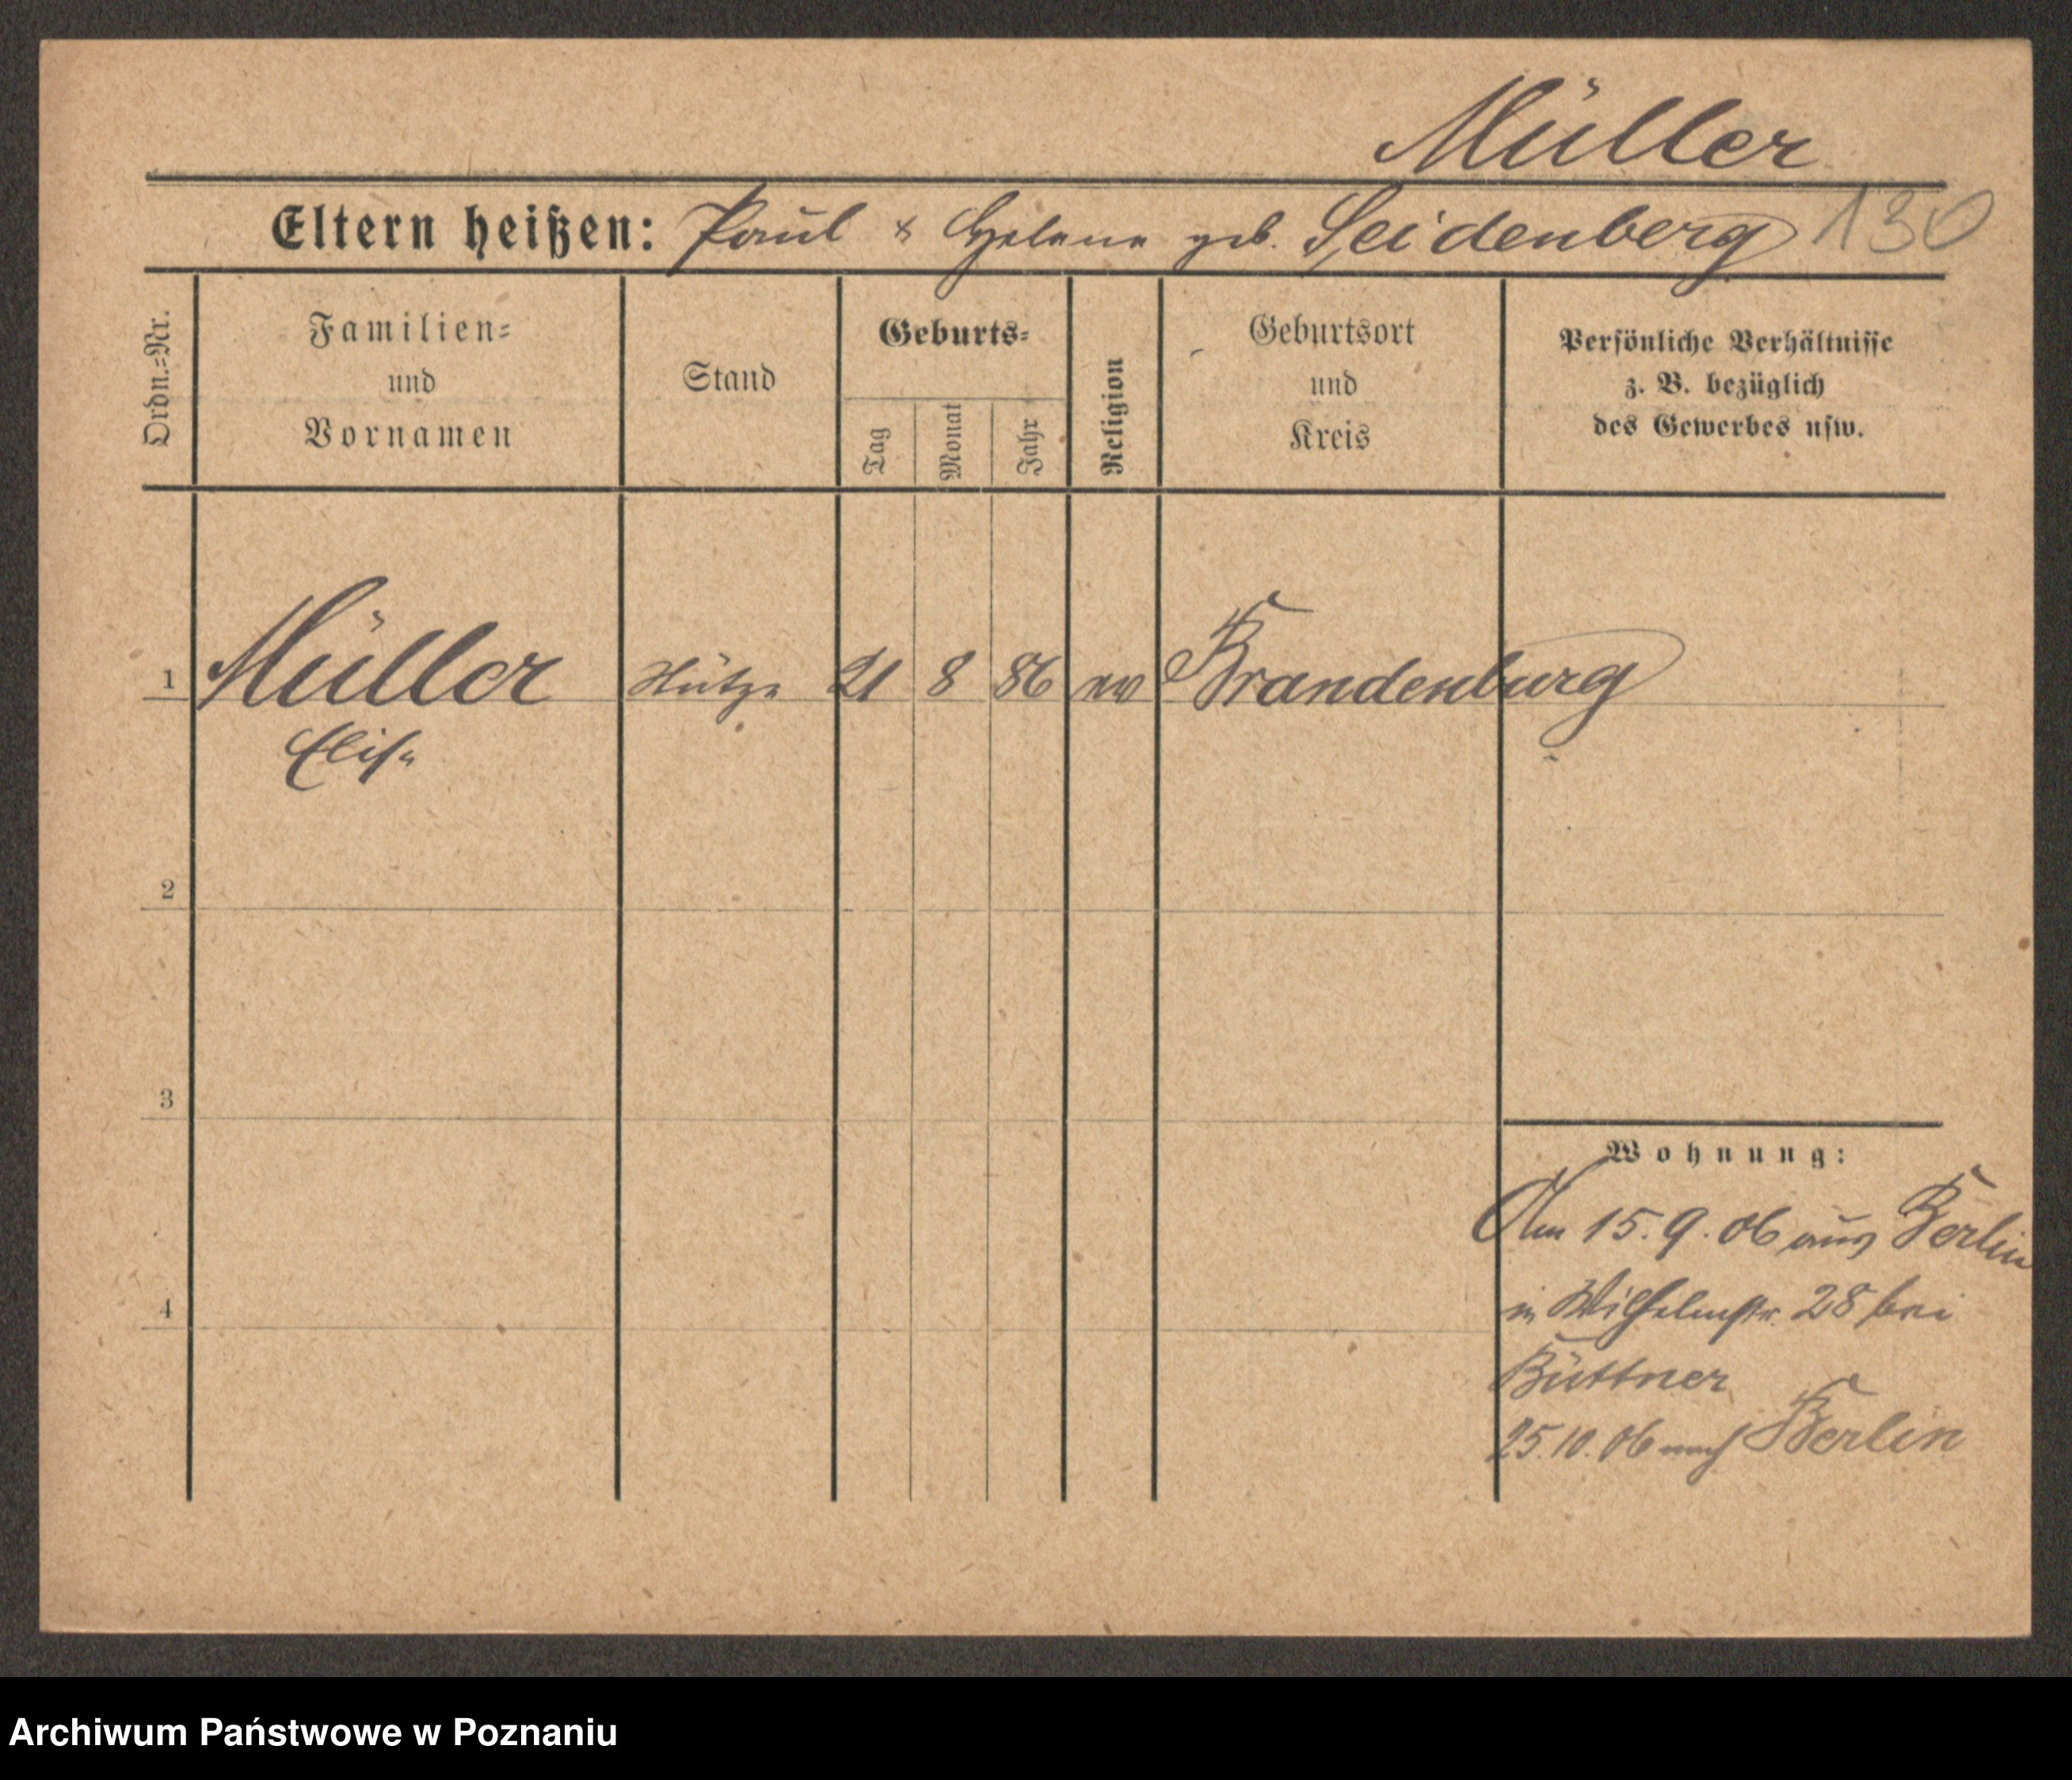 Müller
Eltern heißen: Paul & Helene geb. Seidenberg 130
Ordn.=Nr.
Familien= und Vornamen
Stand
Geburts=
Tag
Monat
Jahr
Religion
Geburtsort und Kreis
Persönliche Verhältnisse
z. B. bezüglich
des Gewerbes usw.
1 Müller Stütze 21 8 86 ev Brandenburg
Elise
2
3
4
Wohnung:
Am 15.9.06 aus Berlin
in Wilhelmstr. 28 bei
Büttner
25.10.06 nach Berlin
Archiwum Państwowe w Poznaniu